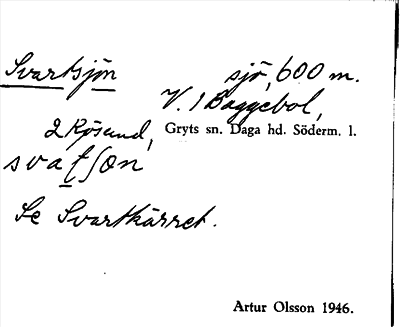 Svartsjön sjö, 600 m.
V. 1 Baggebol,
2 Kösund, Gryts sn. Daga hd. Söderm. l.
svatʃön
Se Svartkärret.
Artur Olsson 1946.